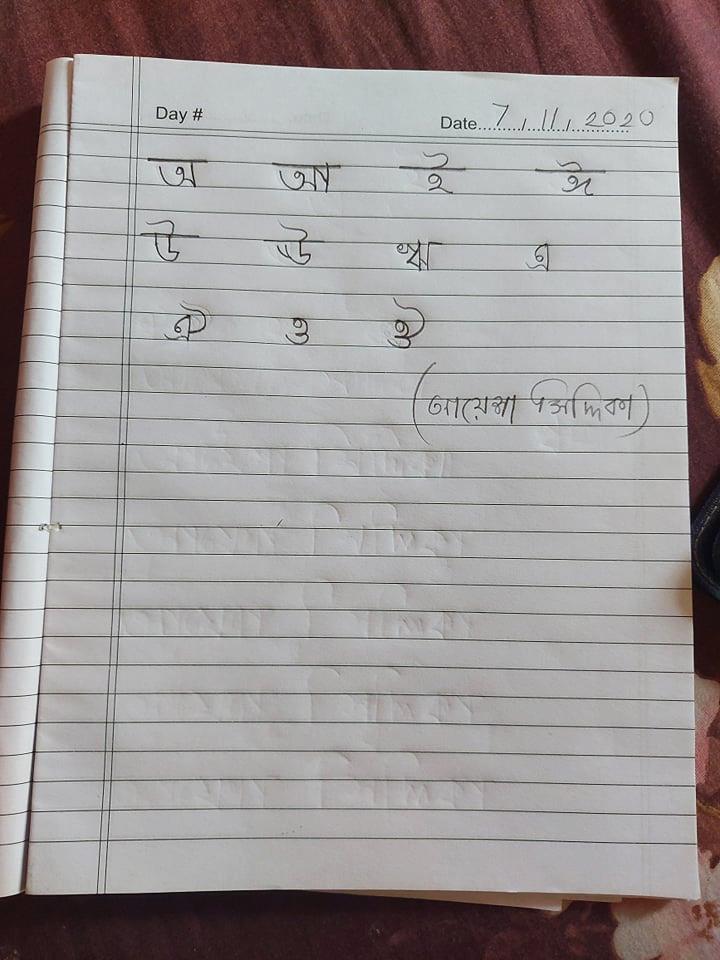 Day #
Date 7, 11, 2020
অ আ ই ঈ
উ ঊ ঋ এ
ঐ ও ঔ
(আয়েশা সিদ্দিকা)